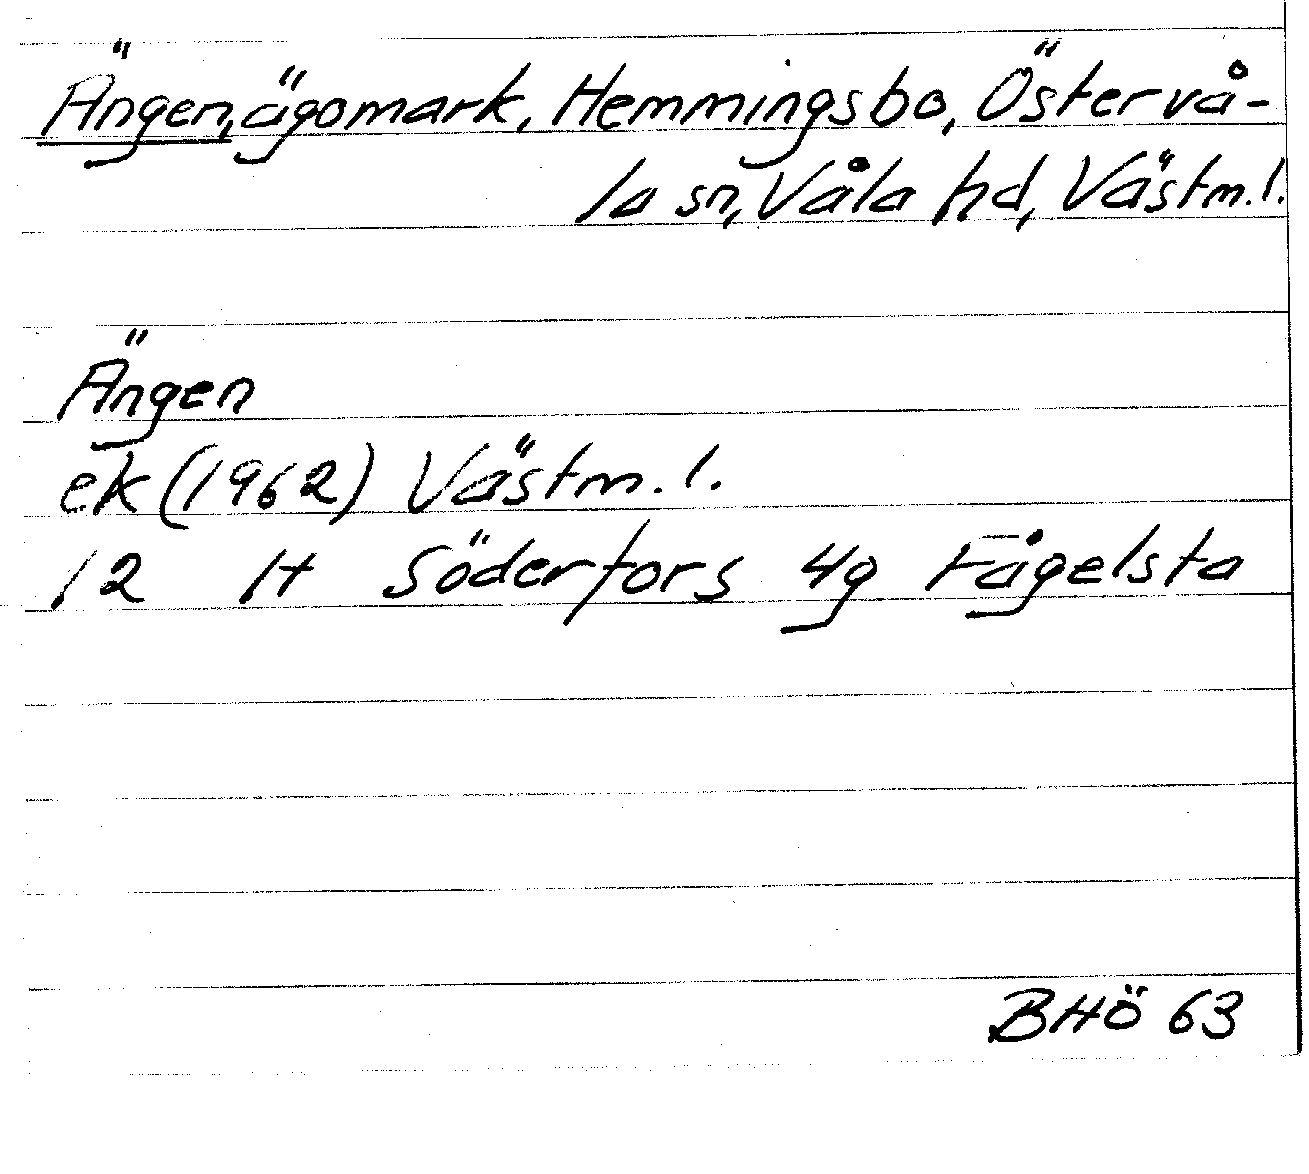 Ängen, ägomark, Hemmingsbo, Östervå-
la sn, Våla hd, Västm.l.
Ängen
ek (1962) Västm.l.
12 H Söderfors 4g Fågelsta
BHÖ 63